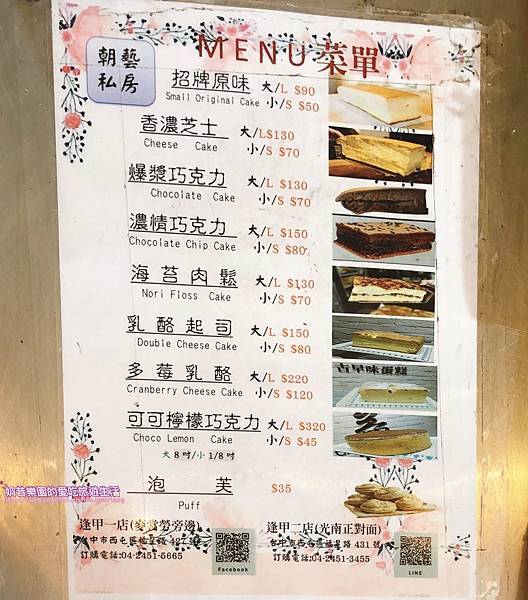 朝藝
私房
MENU菜單
招牌原味 大/L $90
Small Original Cake 小/S $50
香濃芝士 大/L$130
Cheese Cake 小/S $70
爆漿巧克力 大/L $130
Chocolate Cake 小/S $70
濃情巧克力 大/L $150
Chocolate Chip Cake 小/S $80
海苔肉鬆 大/L $130
Nori Floss Cake 小/S $70
乳酪起司 大/L $150
Double Cheese Cake 小/S $80
古早味蛋糕
多莓乳酪 大/L $220
Cranberry Cheese Cake 小/S $120
可可檸檬巧克力 大/L $320
Choco Lemon Cake 小/S $45
大 8吋/小 1/8吋
泡芙 $35
Puff
奶昔樂園的愛吃旅遊生活
逢甲一店(麥當勞旁邊) 逢甲二店(光南正對面)
台中市西屯區福星路 427 號 台中市西屯區福星路 431 號
訂購電話:04-2451-5665 訂購電話:04-2451-3455
Facebook LINE